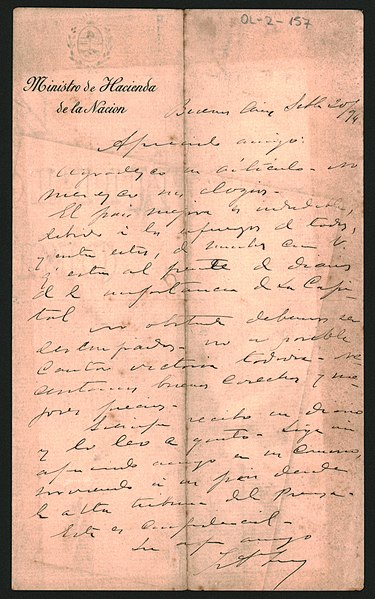 OL-2-157
Ministro de Hacienda
de la Nacion
Buenos Aires Set 20/94
Apreciado amigo:
Agradezco su artículo - no
merezco sus elogios.
El país mejora es indudable,
debido á los esfuerzos de todos,
y entre estos, de muchos como V.
q' están al frente de diarios
de la importancia de La Capi-
tal
no obstante debemos ser
no es posible
cantar victoria todavía -
buenas cosechas y me-
jores precios.
Siempre recibo su diario
y lo leo con gusto - Siga mi
apreciado amigo en su camino,
sirviendo á su país desde
la alta tribuna del Prensa -
Esta es confidencial -
Su amigo